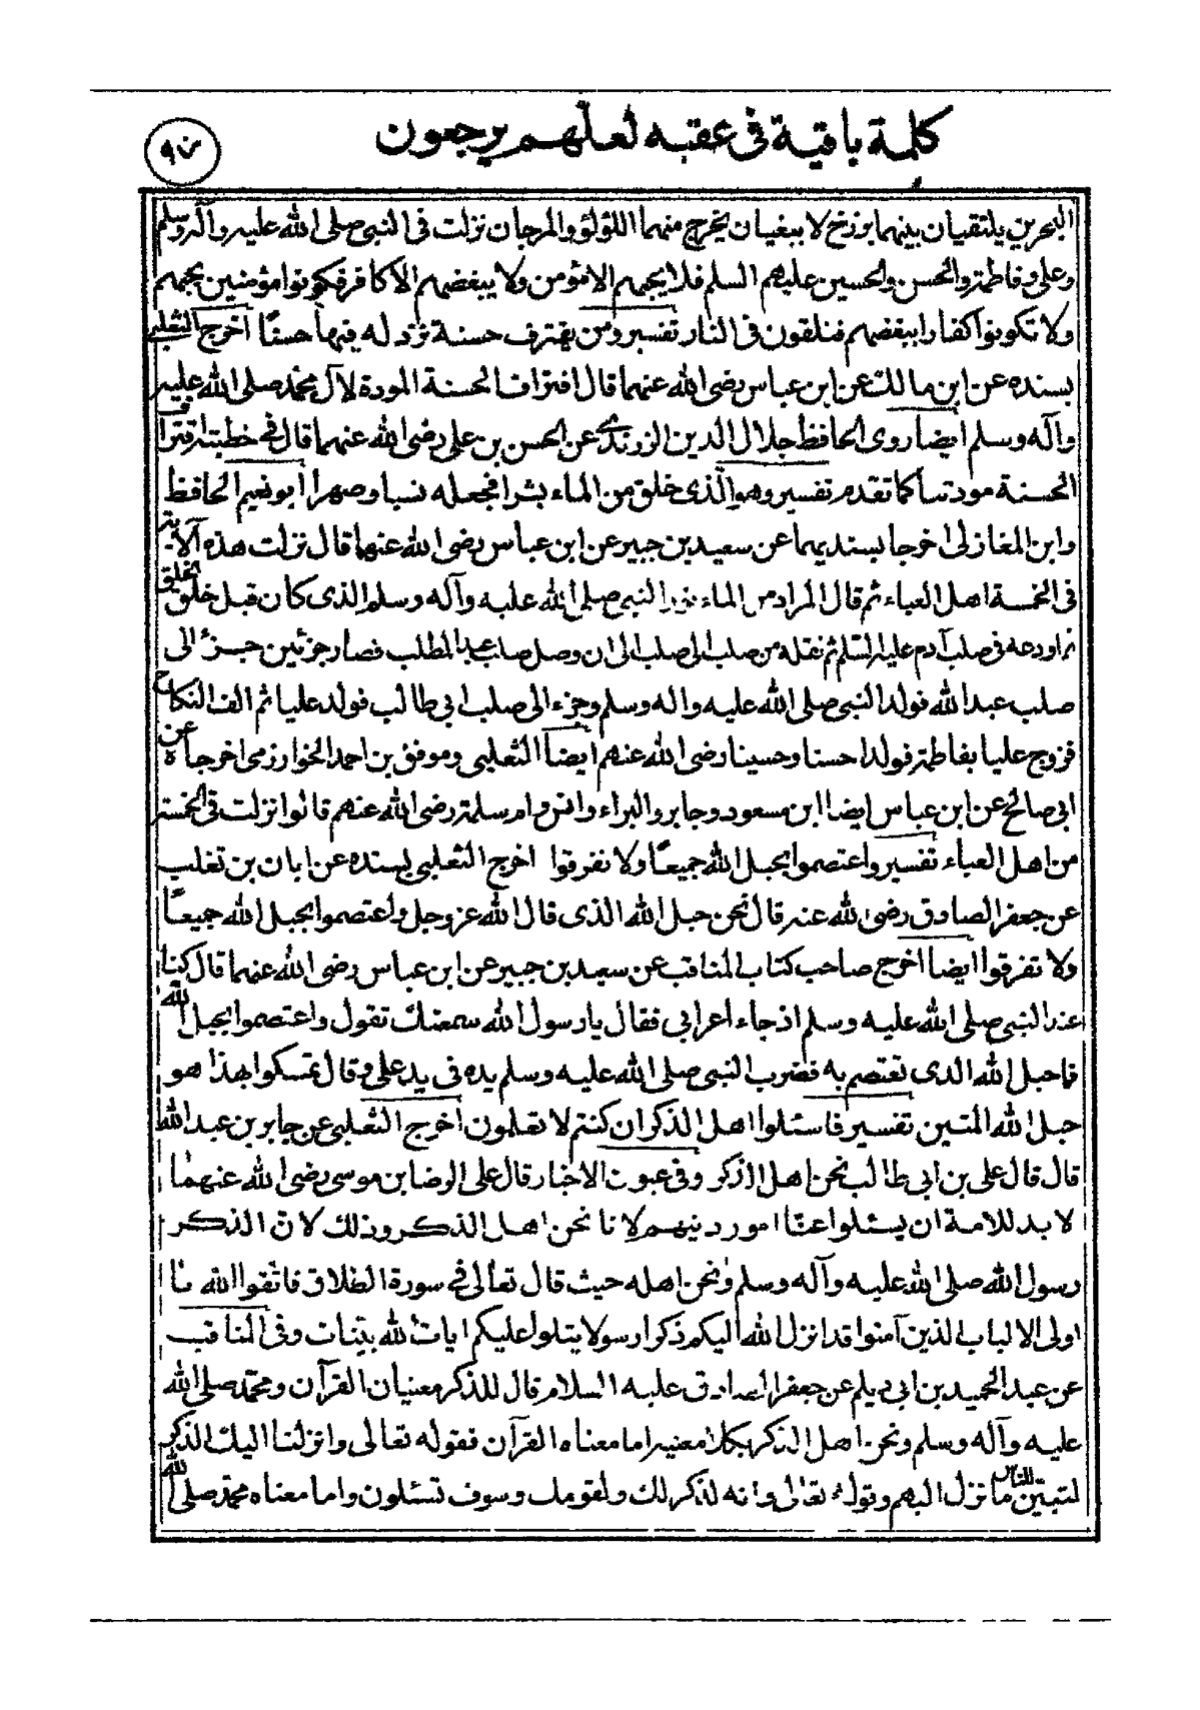 كلمة باقية فى عقبه لعلهم يرجعون
٩٧
البحرين يلتقيان بينهما برزخ لا يبغيان يخرج منهما اللؤلؤ والمرجان نزلت فى النبى صلى الله عليه وآله وسلم
وعلى وفاطمة والحسن والحسين عليهم السلم فلا يحبهم الا مؤمن ولا يبغضهم الا كافر فكونوا مؤمنين بحبهم
ولا تكونوا كفارا ببغضهم فتلقون فى النار تفسير ومن يقترف حسنة نزد له فيها حسنًا اخرج الثعلبى
بسنده عن ابن مالك عن ابن عباس رضى الله عنهما قال اقتراف الحسنة المودة لآل محمد صلى الله عليه
وآله وسلم ايضا روى الحافظ جلال الدين الزرندى عن الحسن بن على رضى الله عنهما قال فى خطبته اقتراف
الحسنة مودتنا كما تقدم تفسير وهو الذى خلق من الماء بشرا فجعله نسبا وصهرا ابو نعيم الحافظ
وابن المغازلى اخرجا بسنديهما عن سعيد بن جبير عن ابن عباس رضى الله عنهما قال نزلت هذه الآية
فى الخمسة اهل العباء ثم قال المراد من الماء نور النبى صلى الله عليه وآله وسلم الذى كان قبل خلق الخلق
ثم اودعه فى صلب آدم عليه السلم ثم نقله من صلب الى صلب الى ان وصل صلب عبد المطلب فصار جزئين جزء الى
صلب عبد الله فولد النبى صلى الله عليه واله وسلم وجزء الى صلب ابى طالب فولد عليا ثم الف النكاح
فزوج عليا بفاطمة فولدا حسنا وحسينا رضى الله عنهم ايضا الثعلبى وموفق بن احمد الخوارزمى اخرجاه عن
ابى صالح عن ابن عباس ايضا ابن مسعود وجابر والبراء وانس وام سلمة رضى الله عنهم قالوا نزلت فى الخمسة
من اهل العباء تفسير واعتصموا بحبل الله جميعًا ولا تفرقوا اخرج الثعلبى بسنده عن ابان بن تغلب
عن جعفر الصادق رضى الله عنه قال نحن حبل الله الذى قال الله عز وجل واعتصموا بحبل الله جميعًا
ولا تفرقوا ايضا اخرج صاحب كتاب المناقب عن سعيد بن جبير عن ابن عباس رضى الله عنهما قال كنا
عند النبى صلى الله عليه وسلم اذ جاء اعرابى فقال يا رسول الله سمعتك تقول واعتصموا بحبل الله
فما حبل الله الذى نعتصم به فضرب النبى صلى الله عليه وسلم يده فى يد على وقال تمسكوا بهذا هو
حبل الله المتين تفسير فاسئلوا اهل الذكر ان كنتم لا تعلمون اخرج الثعلبى عن جابر بن عبد الله
قال قال على بن ابى طالب نحن اهل الذكر وفى عيون الاخبار قال على الرضا بن موسى رضى الله عنهما
لا بد للامة ان يسئلوا عنّا امور دينهم لانا نحن اهل الذكر وذلك لان الذكر
رسول الله صلى الله عليه وآله وسلم ونحن اهله حيث قال تعالى فى سورة الطلاق فاتقوا الله يا
اولى الالباب الذين آمنوا قد انزل الله اليكم ذكرا رسولا يتلوا عليكم ايات الله بينات وفى المناقب
عن عبد الحميد بن ابى ديلم عن جعفر الصادق عليه السلام قال للذكر معنيان القرآن ومحمد صلى الله
عليه وآله وسلم ونحن اهل الذكر بكلا معنييه اما معناه القرآن فقوله تعالى وانزلنا اليك الذكر
لتبين للناس ما نزل اليهم وقوله تعالى وانه لذكر لك ولقومك وسوف تسئلون واما معناه محمد صلى الله